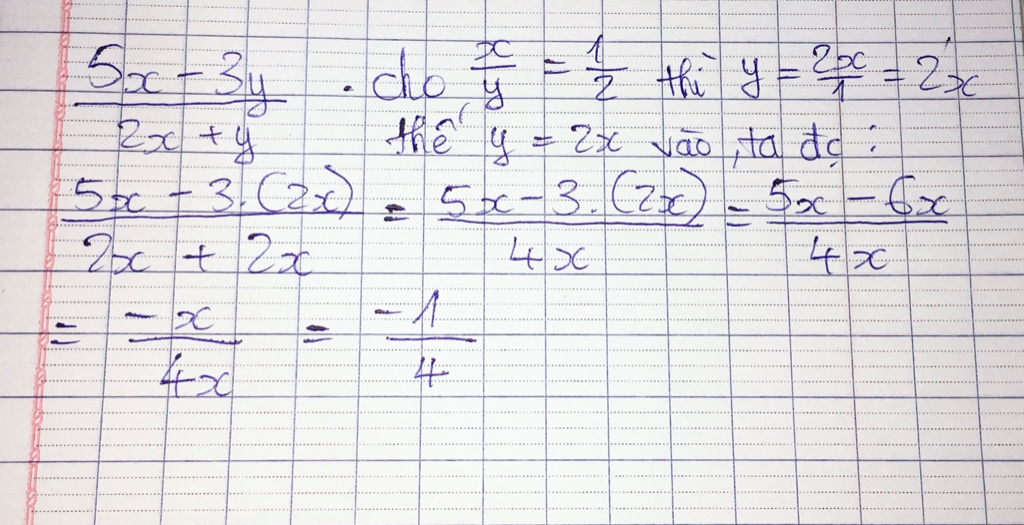 (5x - 3y)/(2x + y) . cho x/y = 1/2 thì y = 2x/1 = 2x
thế y = 2x vào, ta đc :
(5x - 3.(2x))/(2x + 2x) = (5x - 3.(2x))/(4x) = (5x - 6x)/(4x)
= (-x)/(4x) = (-1)/4